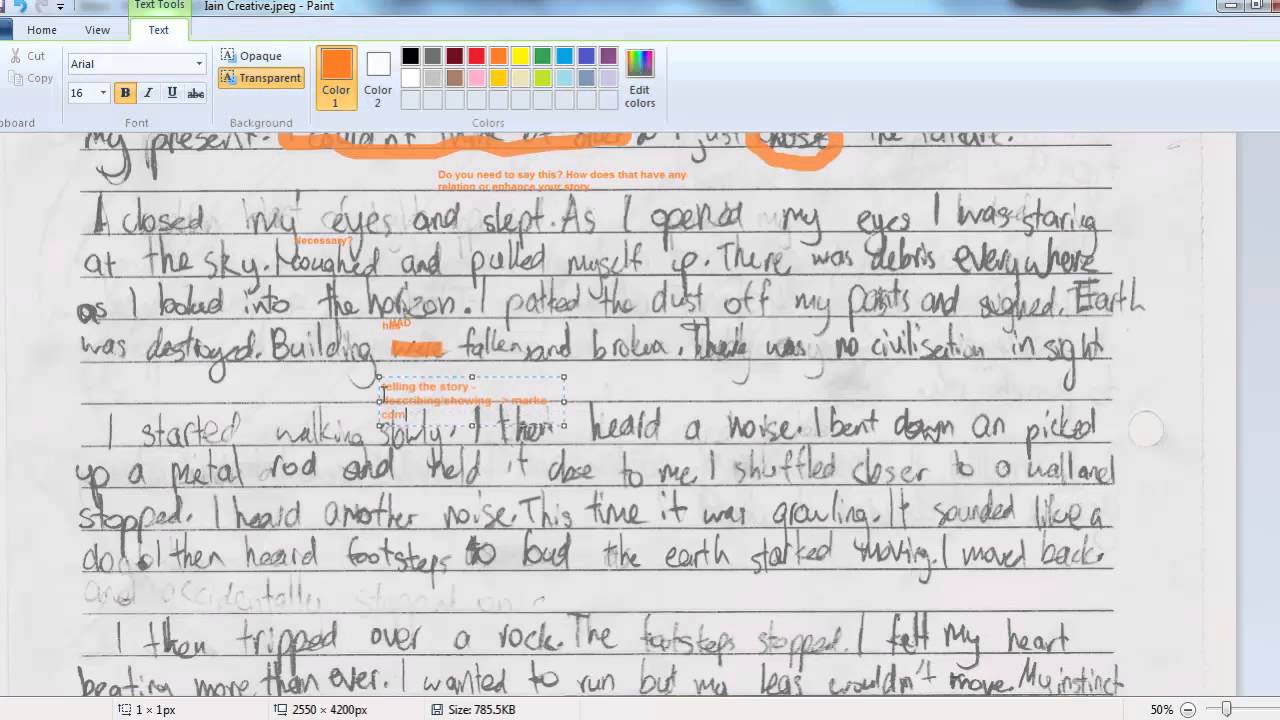 Text Tools
Iain Creative.jpeg - Paint
Home View Text
Cut
Copy
Arial
16 B I U abc
Opaque
Transparent
Color 1
Color 2
Edit colors
pboard Font Background Colors
my present. I couldn't think of I just chose the future.
Do you need to say this? How does that have any
relation or enhance your story
I closed my eyes and slept. As I opened my eyes I was staring
Necessary?
at the sky. I coughed and pulled myself up. There was debris everywhere
as I looked into the horizon. I patted the dust off my pants and sighed. Earth
has HAD
was destroyed. Building were fallen and broken. There was no civilisation in sight
telling the story -
describing/showing --> marks
com
I started walking slowly. I then heard a noise. I bent down an picked
up a metal rod and held it close to me. I shuffled closer to a wall and
stopped. I heard another noise. This time it was growling. It sounded like a
I then heard footsteps so loud the earth started moving. I moved back.
and accidentally stepped on a
I then tripped over a rock. The footsteps stopped. I felt my heart
beating more than ever. I wanted to run but my legs wouldn't move. My instinct
1 × 1px 2550 × 4200px Size: 785.5KB 50%